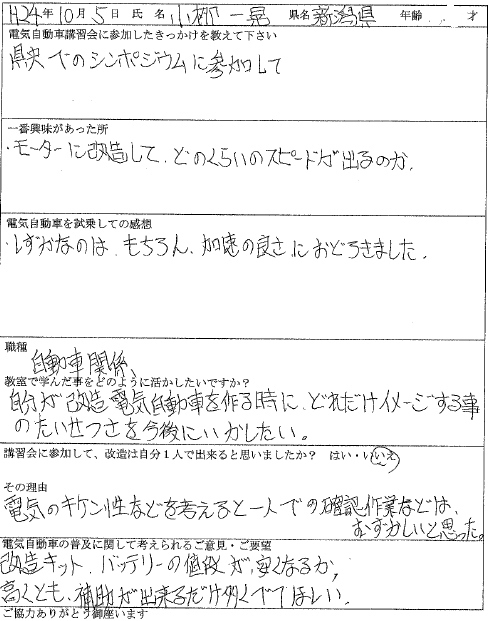 H24年10月5日 氏名 小柳 一晃 県名 新潟県 年齢 才
電気自動車講習会に参加したきっかけを教えて下さい
県央でのシンポジウムに参加して
一番興味があった所
・モーターに改造して、どのくらいのスピードが出るのか、
電気自動車を試乗しての感想
・しずかなのは、もちろん、加速の良さにおどろきました。
職種
自動車関係、
教室で学んだ事をどのように活かしたいですか?
自分が改造電気自動車を作る時に、どれだけイメージする事
のたいせつさを今後にいかしたい。
講習会に参加して、改造は自分1人で出来ると思いましたか? はい・いいえ
その理由
電気のキケン性などを考えると一人での確認作業などは、
むずかしいと思った。
電気自動車の普及に関して考えられるご意見・ご要望
改造キット、バッテリーの値段が、安くなるか、
高くとも、補助が出来るだけ多くでてほしい。
ご協力ありがとう御座います